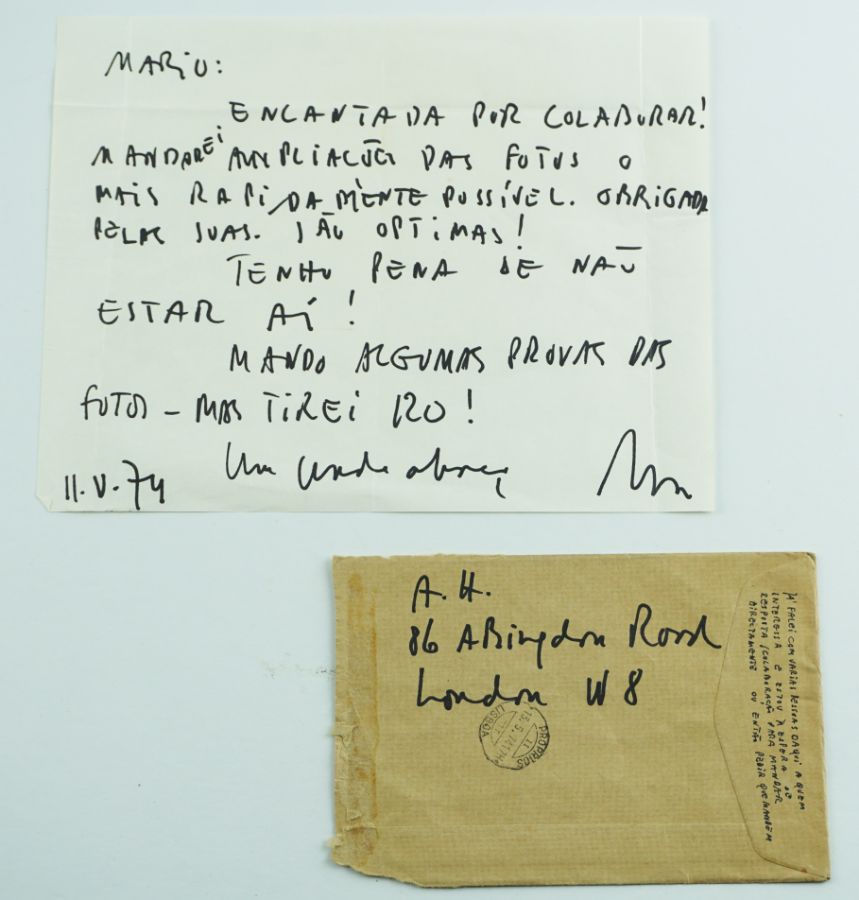 MARIO:
ENCANTADA POR COLABORAR!
MANDAREI AMPLIAÇÕES DAS FOTOS O
MAIS RAPIDAMENTE POSSÍVEL. OBRIGADA
PELAS SUAS. SÃO OPTIMAS!
TENHO PENA DE NÃO
ESTAR AÍ!
MANDO ALGUMAS PROVAS DAS
FOTOS – MAS TIREI 120!
Um grande abraço,
11.V.74
A. H.
86 Abingdon Road
London W8
PROPRIOS
LISBOA
JÁ FALEI COM VARIAS PESSOAS DAQUI A QUEM
INTERESSA E ESTOU À ESPERA DE
RESPOSTA/COLABORAÇÃO PARA MANDAR
DIRECTAMENTE OU ENTÃO PEDIR QUE MANDEM